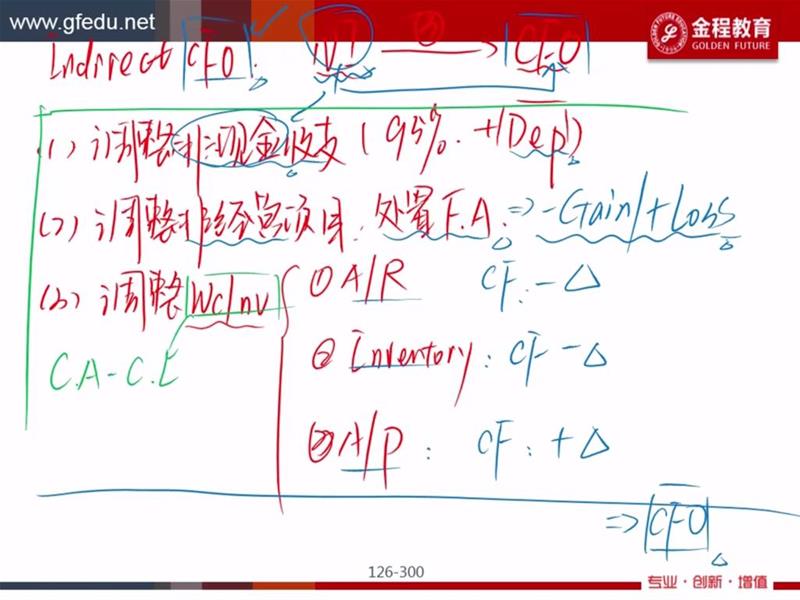 www.gfedu.net
金程教育
GOLDEN FUTURE
Indirect CFO. NI ③ → CFO
(1) 调整非现金收支 (95%. +Dep)
(2) 调整非经营项目. 处置F.A. ⇒ -Gain/+Loss
(3) 调整 Wc Inv ① A/R CF: -△
C.A - C.L ② Inventory: CF -△
③ A/P: CF: +△
⇒ CFO
126-300
专业·创新·增值